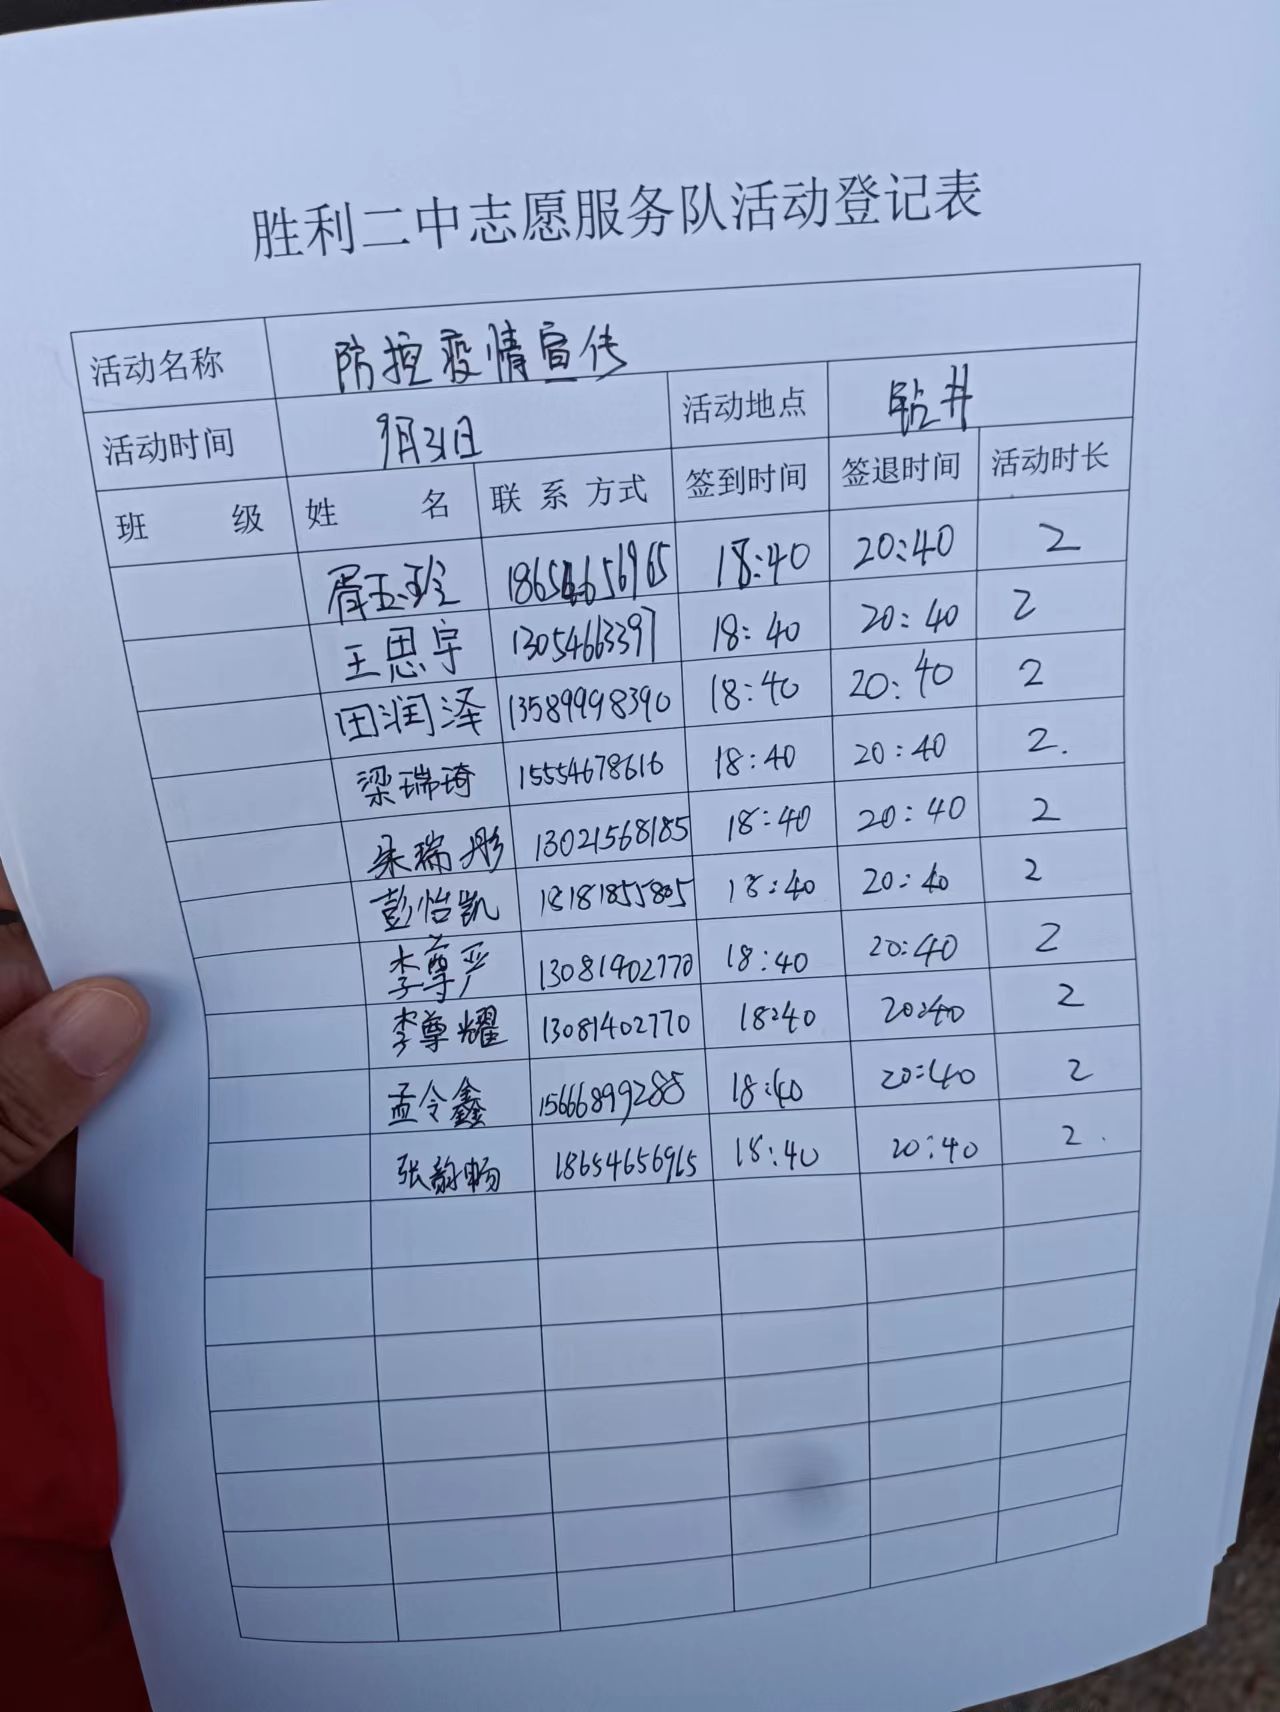 胜利二中志愿服务队活动登记表
活动名称 防控疫情宣传
活动时间 9月21日 活动地点 钻井
班 级 姓 名 联系方式 签到时间 签退时间 活动时长
胥玉珍 18654656965 18:40 20:40 2
王思宇 13054663397 18:40 20:40 2
田润泽 13589998390 18:40 20:40 2
梁瑞琦 15554678616 18:40 20:40 2.
朱瑞彤 13021568185 18:40 20:40 2
彭怡凯 18181855805 18:40 20:40 2
李尊严 13081402770 18:40 20:40 2
李尊耀 13081402770 18:40 20:40 2
孟令鑫 15666899285 18:40 20:40 2
张韵畅 18654656965 18:40 20:40 2.